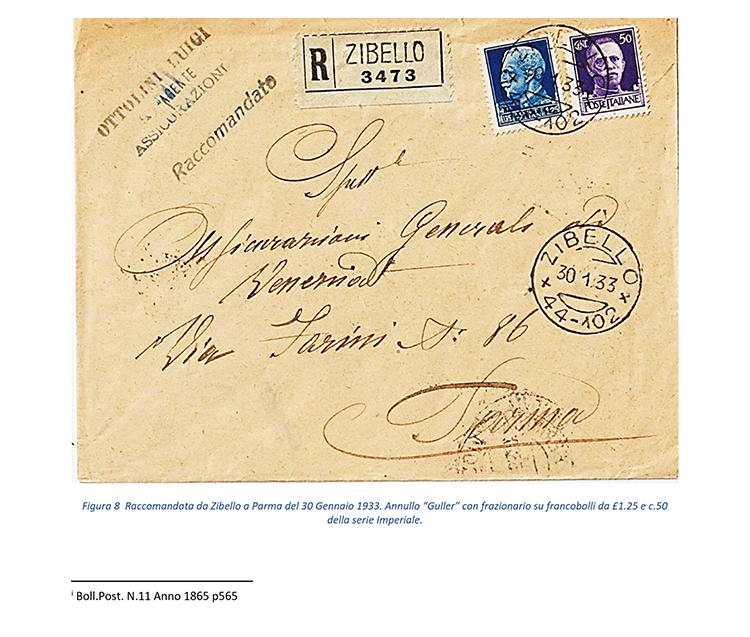 OTTOLINI LUIGI
AGENTE
ASSICURAZIONI
Raccomandato
R ZIBELLO
3473
CENT. 50
POSTE ITALIANE
30 1.33
102
Spett.le
Assicurazioni Generali di
Venezia
Via Farini N: 86
Parma
ZIBELLO
30 1.33
44-102
Figura 8 Raccomandata da Zibello a Parma del 30 Gennaio 1933. Annullo “Guller” con frazionario su francobolli da £1.25 e c.50
della serie Imperiale.
i Boll.Post. N.11 Anno 1865 p565